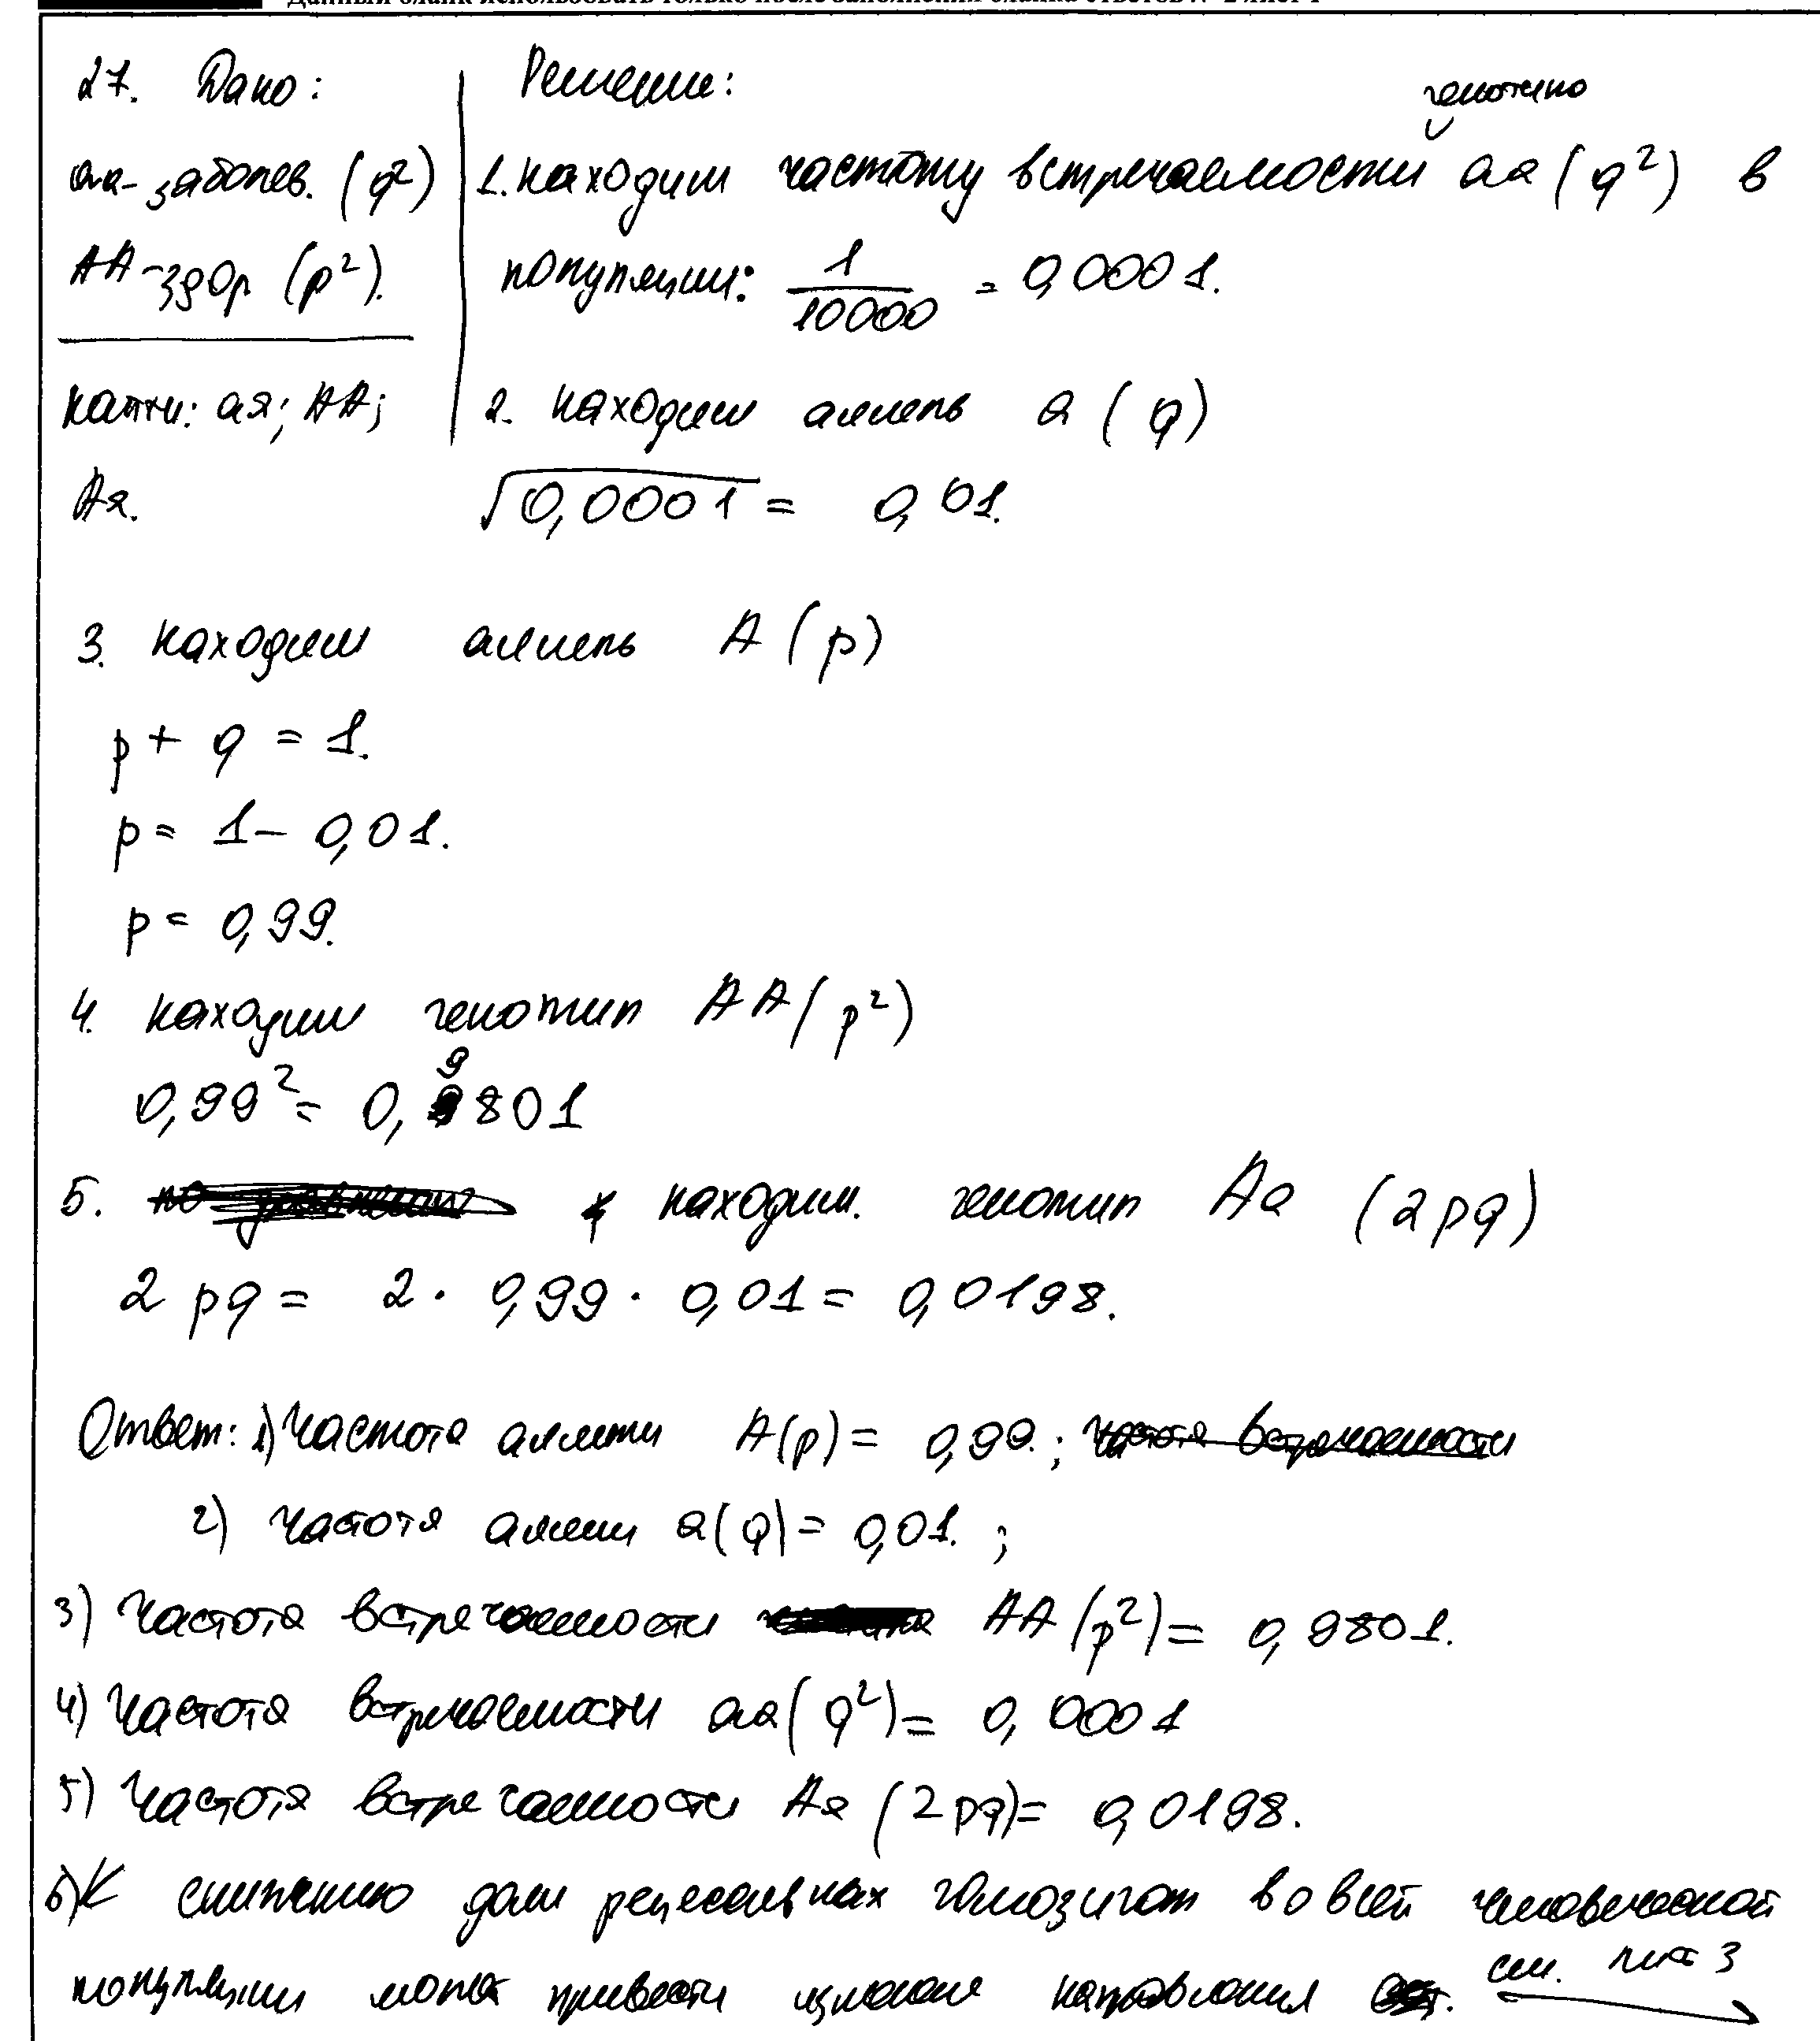 Данный бланк использовать только после заполнения бланка ответов № 2 лист 1
27. Дано:
аа - заболев. (q²)
АА - здор (p²).
найти: аа; АА;
Аа.
Решение:
генотипа
1. находим частоту встречаемости аа (q²) в
популяции: 1/10000 = 0,0001.
2. находим аллель а (q)
√0,0001 = 0,01.
3. находим аллель А (p)
p + q = 1.
p = 1 - 0,01.
p = 0,99.
4. находим генотип АА (p²)
0,99² = 0,9801
5. находим генотип Аа (2pq)
2pq = 2 · 0,99 · 0,01 = 0,0198.
Ответ: 1) Частота аллели А(p) = 0,99.; частота встречаемости
2) частота аллели а(q) = 0,01. ;
3) Частота встречаемости АА (p²) = 0,9801.
4) Частота встречаемости аа (q²) = 0,0001
5) Частота встречаемости Аа (2pq) = 0,0198.
6) К снижению доли рецессивных гомозигот во всей человеческой
популяции может привести направления
см. лист 3